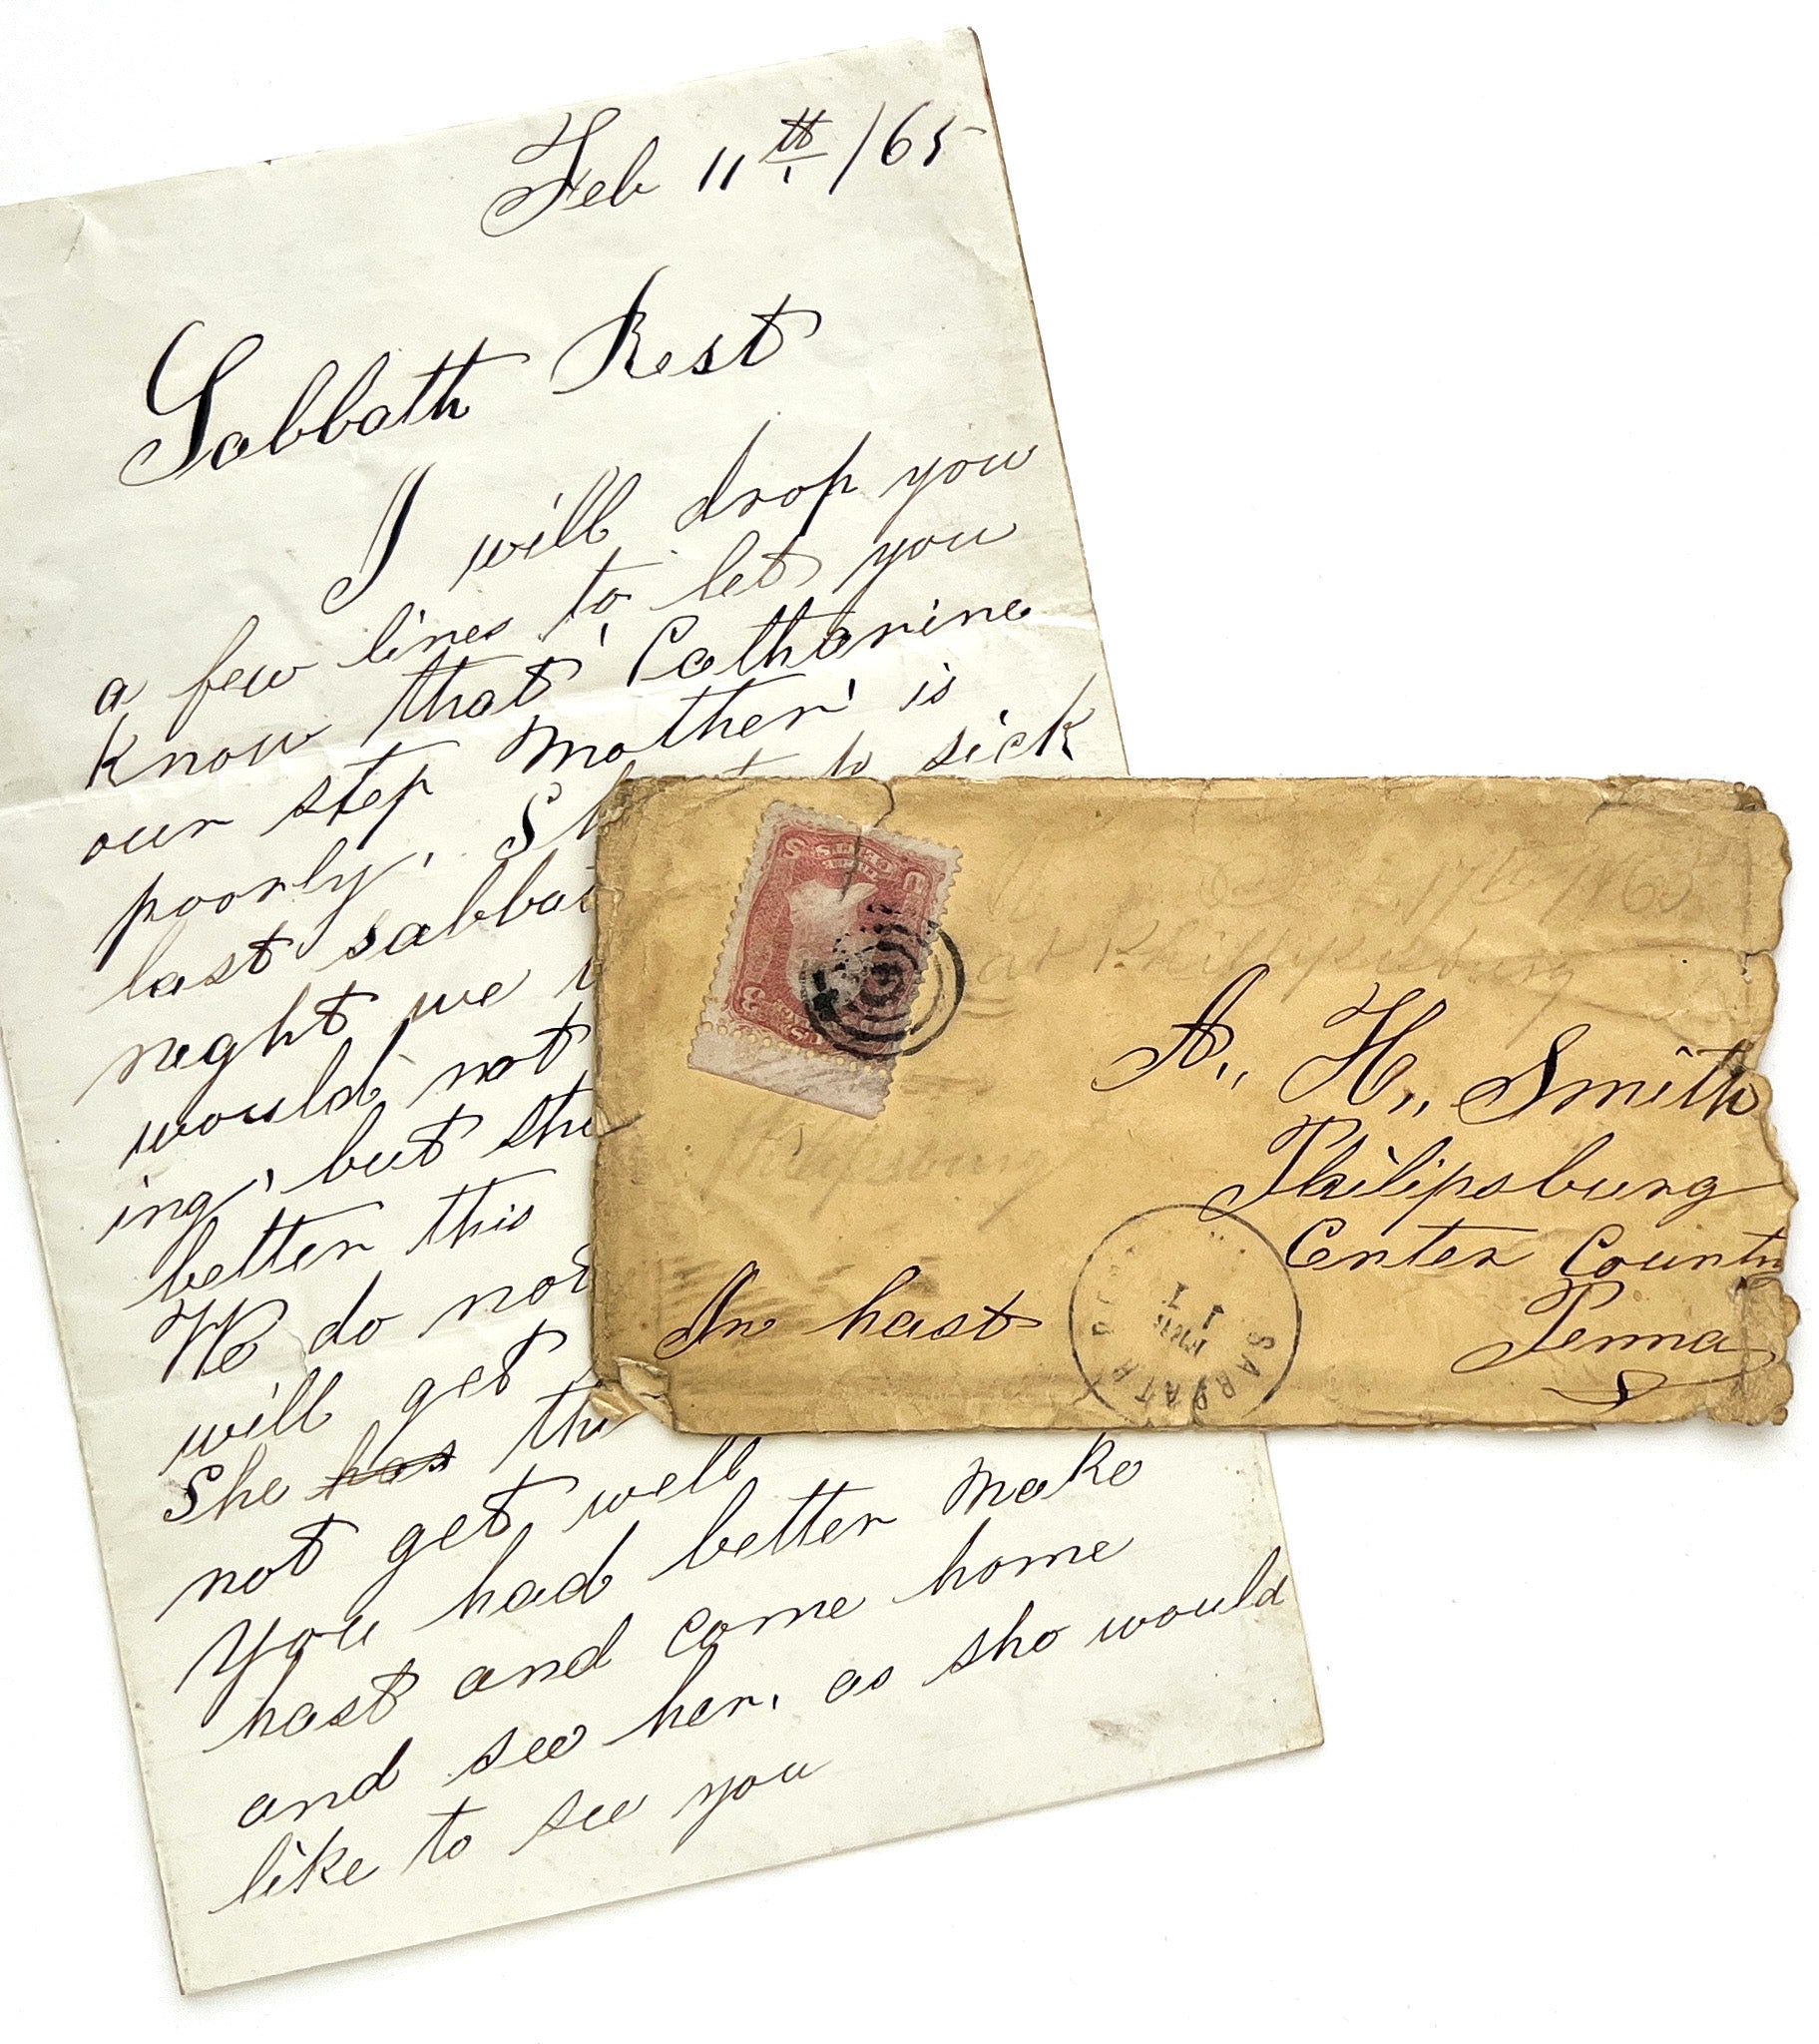 Feb 11th /65
Sabbath Rest
I will drop you
a few lines to let you
know that Catharine
our step mother is
poorly. sick
last sabbat
neght we
would not
ing, but she
better this
We do not
will get
She has
not get well
You had better make
hast and come home
and see her. as sho would
like to see you
17th 1865
at Philipsburg
A,, H,, Smith
Philipsburg
Center County
Penna
In hast
SABBATH